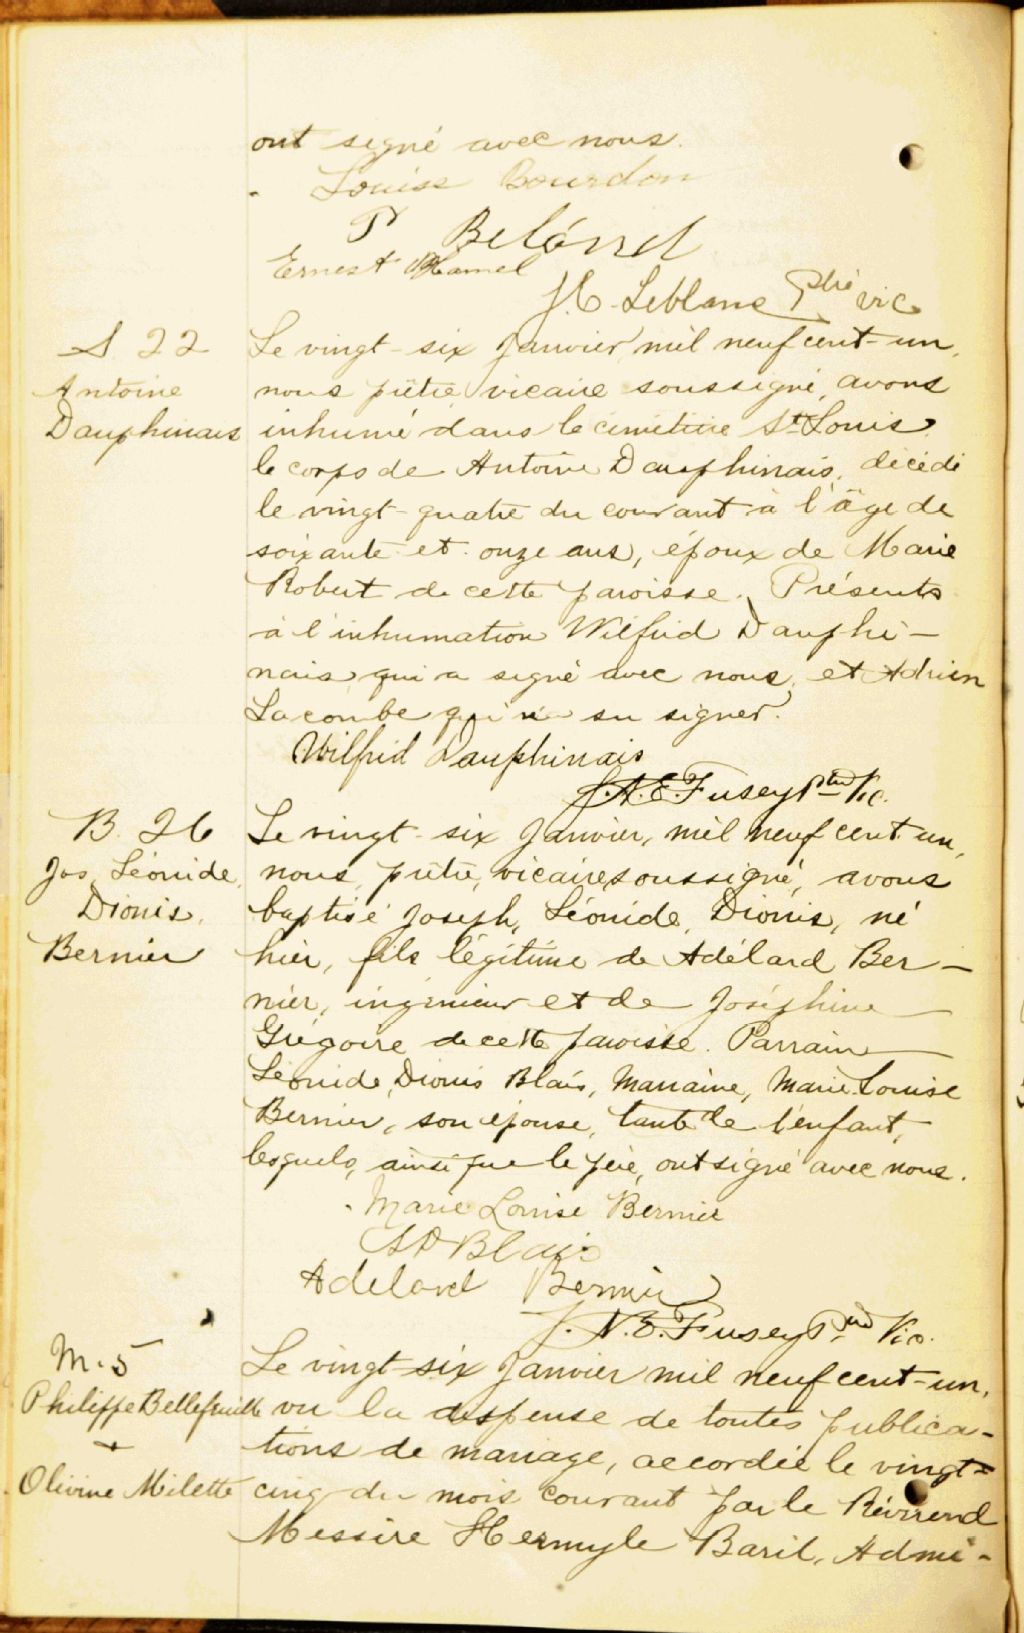 ont signé avec nous.
Louise Bourdon
P Beland
Ernest Hamel
J. E. Leblanc Ptre vic
S. 22
Antoine
Dauphinais
Le vingt-six Janvier mil neuf cent-un,
nous prêtre vicaire soussigné, avons
inhumé dans le cimétière St Louis
le corps de Antoine Dauphinais, décédé
le vingt-quatre du courant à l'âge de
soixante et onze ans, époux de Marie
Robert de cette paroisse. Présents
à l'inhumation Wilfrid Dauphi-
nais qui a signé avec nous, et Adrien
Lacombe qui n'a su signer.
Wilfrid Dauphinais
J. N. E. Fusey Ptre Vic.
B. 26
Jos. Léonide,
Dionis,
Bernier
Le vingt-six Janvier, mil neuf cent un,
nous, prêtre, vicaire, soussigné, avons
baptisé Joseph, Léonide, Dionis, né
hier, fils légitime de Adélard Ber-
nier, ingénieur et de Joséphine
Grégoire de cette paroisse. Parrain
Léonide, Dionis Blais, Marraine, Marie Louise
Bernier, son épouse, tante de l'enfant,
lesquels, ainsi que le père, ont signé avec nous.
Marie Louise Bernier
LD Blais
Adelard Bernier
J. N. E. Fusey Ptre Vic.
M. 5
Philippe Bellefeuille
+
Olivine Milette
Le vingt-six Janvier mil neuf cent-un,
vu la dispense de toutes publica-
tions de mariage, accordée le vingt-
cinq du mois courant par le Révérend
Messire Hermyle Baril, Admi-